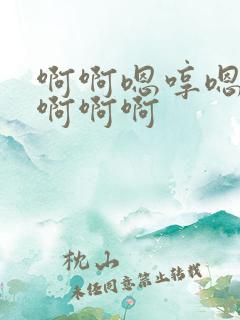 啊啊嗯哼嗯
啊啊啊
枕山
未经同意禁止转载